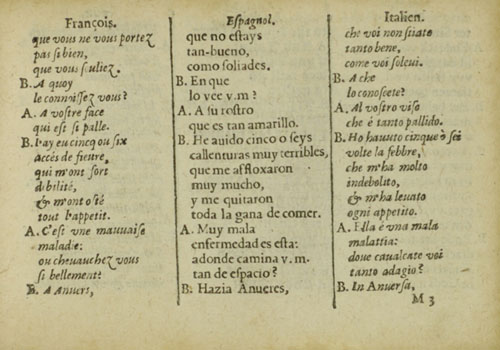 François.
que vous ne vous portez
pas si bien,
que vous souliez.
B. A quoy
le connoissez vous?
A. A vostre face
qui est si palle.
B. I'ay eu cincq ou six
accés de fieure,
qui m'ont fort
dibilité,
& m'ont osté
tout l'appetit.
A. C'est vne mauuaise
maladie:
ou cheuauchez vous
si bellement?
B. A Anuers,
Espagnol.
que no estays
tan-bueno,
como soliades.
B. En que
lo vee v.m?
A. A su rostro
que es tan amarillo.
B. He auido cinco o seys
callenturas muy terribles,
que me affloxaron
muy mucho,
y me quitaron
toda la gana de comer.
A. Muy mala
enfermedad es esta:
adonde camina v.m.
tan de espacio?
B. Hazia Anueres,
Italien.
che voi non stiate
tanto bene,
come voi soleui.
B. A che
lo conoscete?
A. Al vostro viso
che è tanto pallido.
B. Ho hauuto cinque ò sei
volte la febbre,
che m'ha molto
indebolito,
& m'ha leuato
ogni appetito.
A. Ella è vna mala
malattia:
doue caualcate voi
tanto adagio?
B. In Anuersa,
M 3